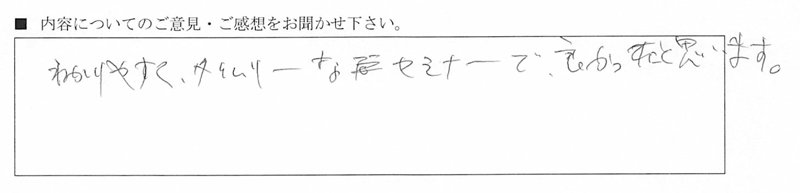 ■ 内容についてのご意見・ご感想をお聞かせ下さい。
わかりやすく、タイムリーなセミナーで、良かったと思います。